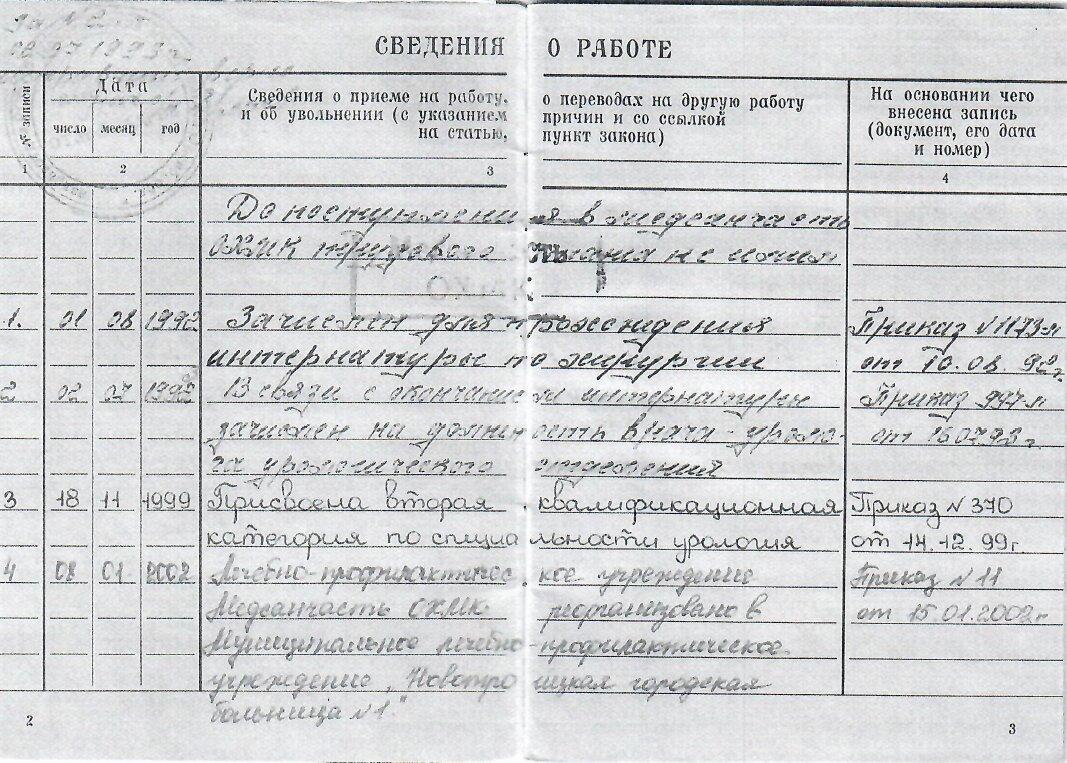 02 07 1993 г.
СВЕДЕНИЯ О РАБОТЕ
№ записи
Дата
число месяц год
Сведения о приеме на работу, о переводах на другую работу
и об увольнении (с указанием причин и со ссылкой
на статью, пункт закона)
На основании чего
внесена запись
(документ, его дата
и номер)
1 2 3 4
До поступления в медсанчасть
ОХМК трудового стажа не имел
1. 01 08 1992 Зачислен для прохождения Приказ №1173-л
интернатуры по хирургии от 10.08.92г.
2 02 07 В связи с окончанием интернатуры Приказ 997-л
зачислен на должность врача-уроло- от 160793г.
га урологического отделения
3 18 11 1999 Присвоена вторая квалификационная Приказ №370
категория по специальности урология от 14.12.99г.
4 08 01 2002 Лечебно-профилактическое учреждение Приказ №11
Медсанчасть ОХМК реорганизовано в от 15.01.2002г
Муниципальное лечебно-профилактическое
учреждение "Новотроицкая городская
больница №1."
2 3